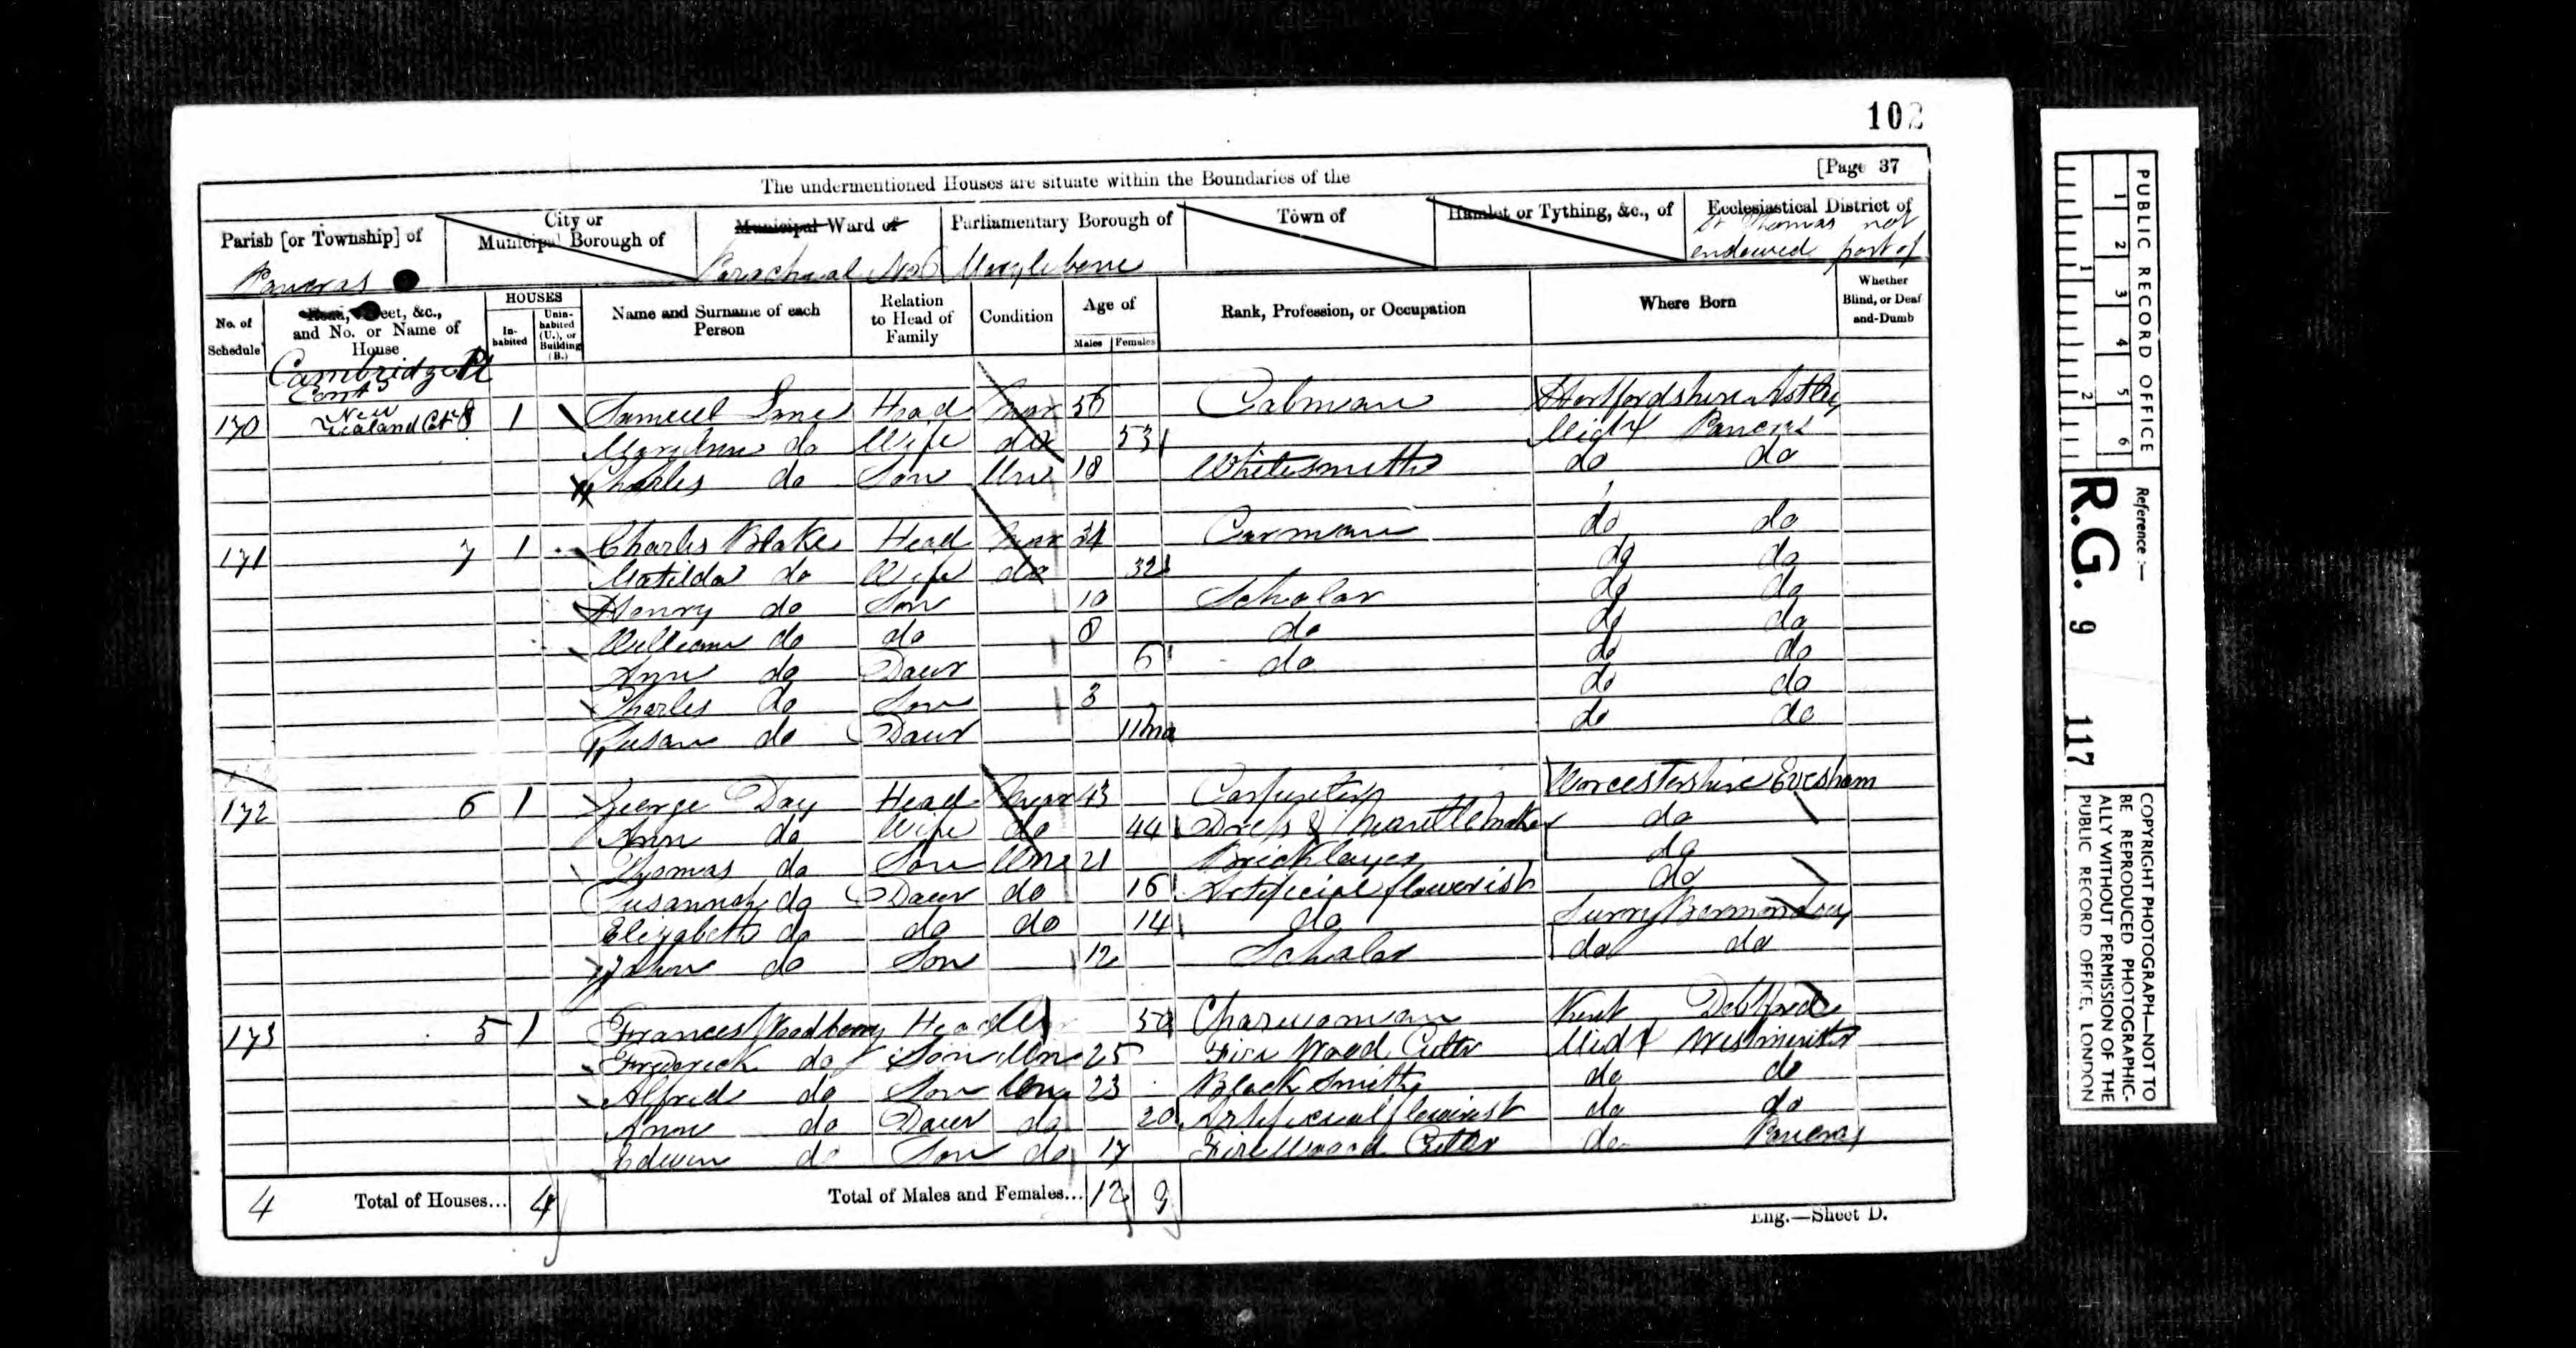 102
[Page 37
The undermentioned Houses are situate within the Boundaries of the
Parish [or Township] of
Pancras
City or Municipal Borough of
Municipal Ward of
Parochial No
Parliamentary Borough of
Marylebone
Town of
Hamlet or Tything, &c., of
Ecclesiastical District of
St Thomas not
endowed part of
No. of Schedule
Road, Street, &c., and No. or Name of House
HOUSES
Inhabited
Uninhabited (U.), or Building (B.)
Name and Surname of each Person
Relation to Head of Family
Condition
Age of
Males
Females
Rank, Profession, or Occupation
Where Born
Whether Blind, or Deaf-and-Dumb
Cambridge Pl
Contd
170 New Zealand Ct 8 1 Samuel Head Mar 56 Cabman Hertfordshire
Mary Ann do Wife do 53 Midx Pancras
Charles do Son Un 18 Whitesmith do do
171 7 1 Charles Blake Head Mar 34 Carman do do
Matilda do Wife do 32 do do
Henry do Son 10 Scholar do do
William do do 8 do do do
Ann do Daur 6 do do do
Charles do Son 3 do do
Susan do Daur 11 mo do do
172 6 1 George Day Head Mar 43 Carpenter Worcestershire Evesham
Ann do Wife do 44 Dress & Mantle Maker do
Thomas do Son Un 21 Bricklayer do
Susannah do Daur do 16 Artificial flowerist do
Elizabeth do do do 14 do Surry Bermondsey
John do Son 12 Scholar do do
173 5 1 Frances Woodberry Head 50 Charwoman Kent Debtford
Frederick do Son Un 25 Fire Wood Cutter Midx Westminster
Alfred do Son Un 23 Black Smith do do
Ann do Daur do 20 Artificial flowerist do do
Edwin do Son do 17 Fire Wood Cutter do Pancras
4 Total of Houses... 4 Total of Males and Females... 12 9
Eng.—Sheet D.
PUBLIC RECORD OFFICE
1 2 3 4 5 6
1 2
Reference :—
R.G. 9 117
COPYRIGHT PHOTOGRAPH—NOT TO
BE REPRODUCED PHOTOGRAPHIC-
ALLY WITHOUT PERMISSION OF THE
PUBLIC RECORD OFFICE, LONDON